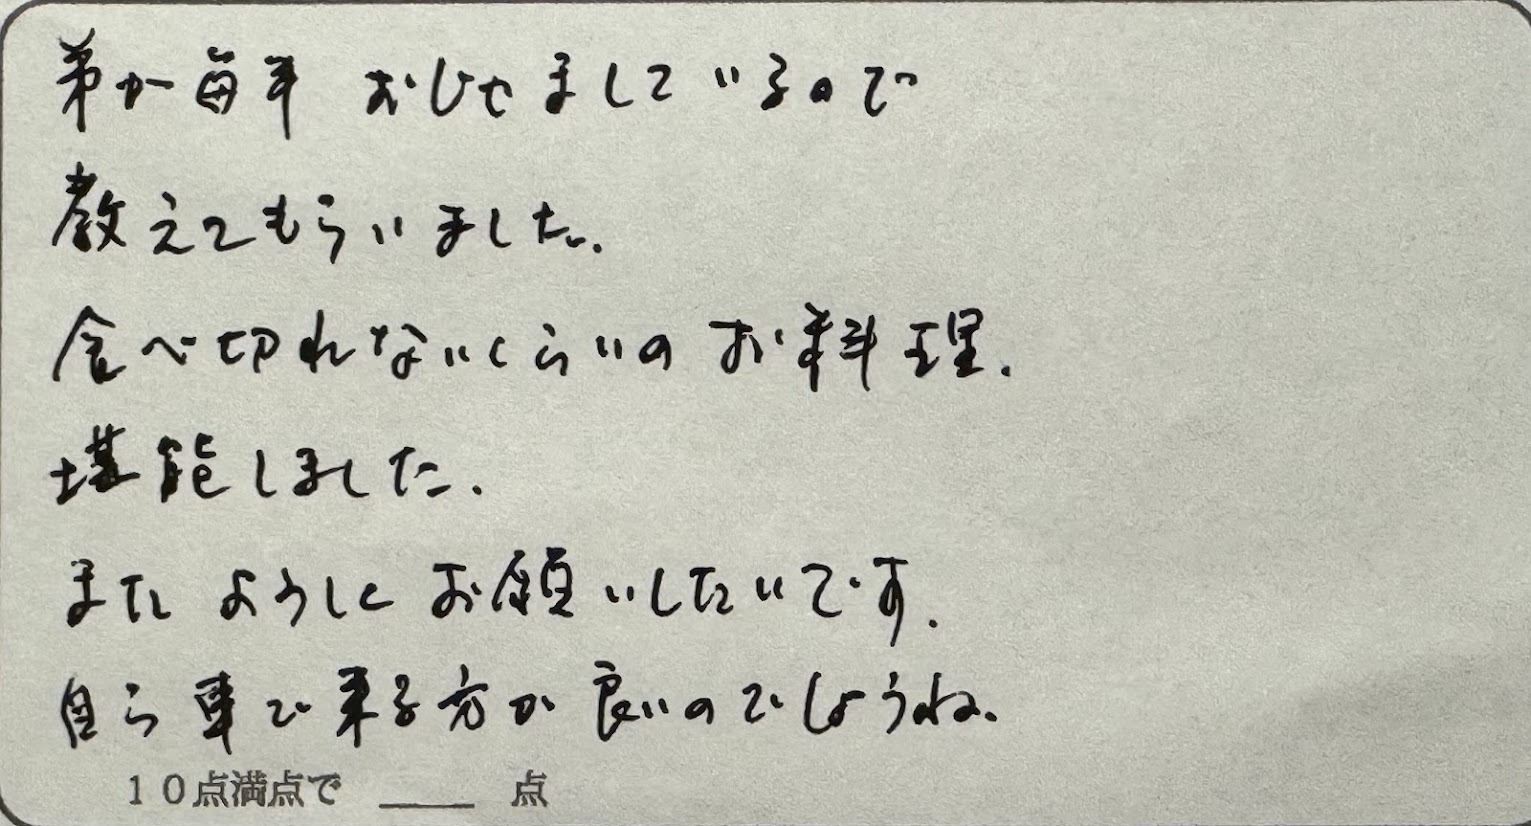 弟が毎年 おじゃましているので
教えてもらいました。
食べ切れないくらいのお料理.
堪能しました.
また よろしくお願いしたいです.
自ら車で来る方が良いのでしょうね.
10点満点で ____ 点